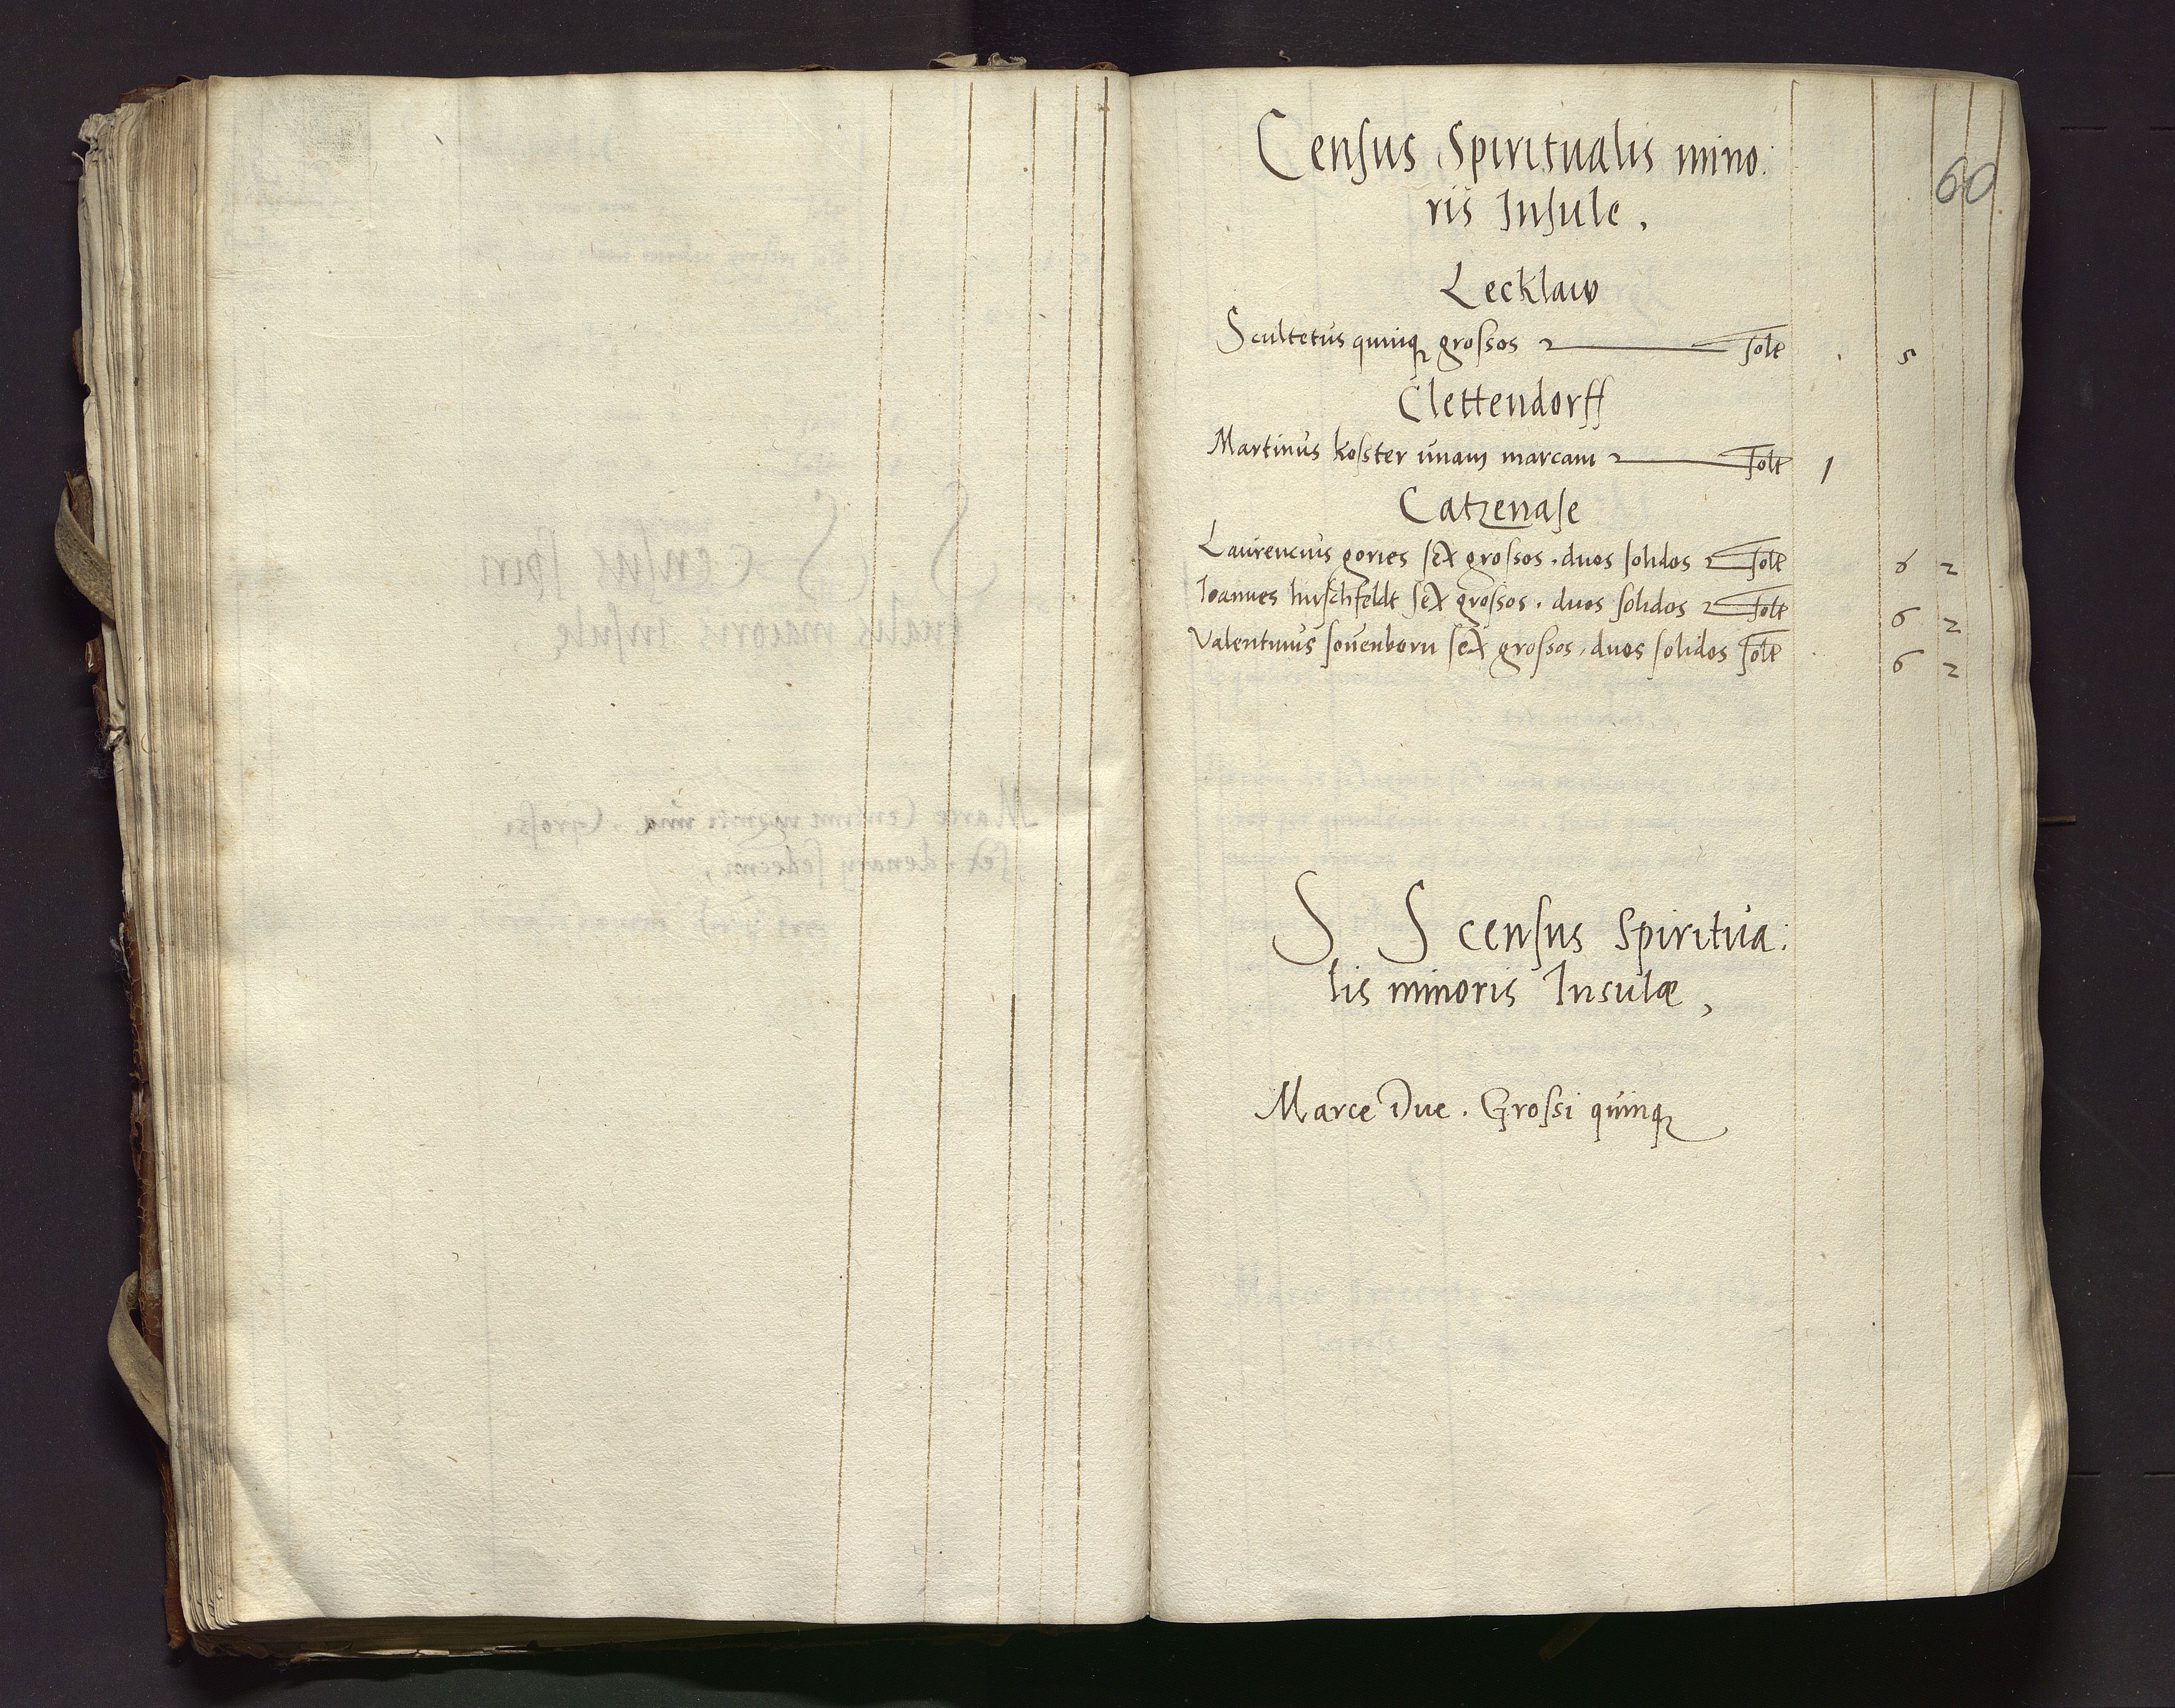 Census Spiritualis mino:
60
ris Insule.
Lecklaw
Scultetus quinq grossos solt 5
Clettendorff
Martinus koster unam marcam solt 1
Catzenase
Laurencius gories sex grossos . duos solidos solt 6 2
Ioannes hirschfeldt sex grossos . duos solidos solt 6 2
Valentinus sonenborn sex grossos . duos solidos solt 6 2
S S census Spiritua:
lis minoris Insulæ,
Marce Due . Grossi quinq